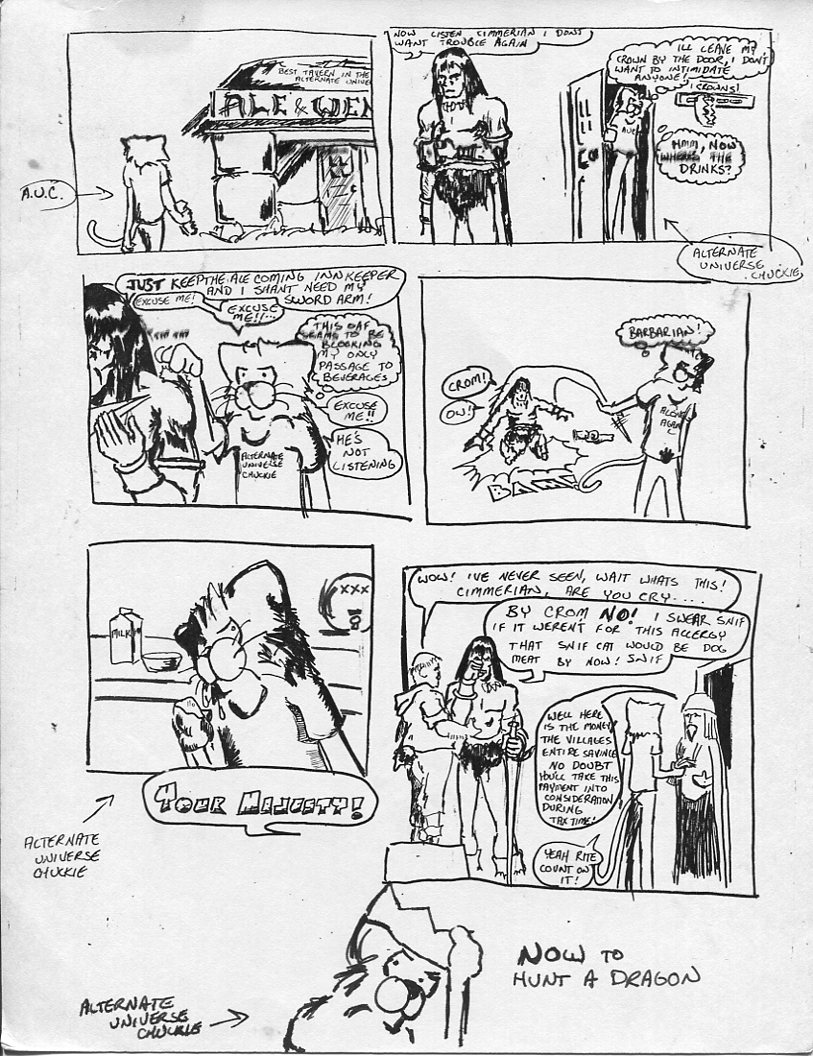 BEST TAVERN IN THE
ALTERNATE UNIVER
ALE & WEN
A.U.C.
NOW LISTEN CIMMERIAN I DONT
WANT TROUBLE AGAIN
ILL LEAVE MY
CROWN BY THE DOOR, I DON'T
WANT TO INTIMIDATE
ANYONE!
CROWNS!
AUC
HMM, NOW
WHERES THE
DRINKS?
ALTERNATE
UNIVERSE
CHUCKIE
JUST KEEP THE ALE COMING INNKEEPER
AND I SHANT NEED MY
SWORD ARM!
EXCUSE ME!
EXCUSE
ME!!...
THIS OAF
SEAMS TO BE
BLOCKING
MY ONLY
PASSAGE TO
BEVERAGES
EXCUSE
ME!!
HE'S
NOT
LISTENING
ALTERNATE
UNIVERSE
CHUCKIE
BARBARIAN!
CROM!
OW!
BAM
XXX
MILK
YOUR MAJESTY!
ALTERNATE
UNIVERSE
CHUCKIE
WOW! I'VE NEVER SEEN, WAIT WHATS THIS!
CIMMERIAN, ARE YOU CRY....
BY CROM NO! I SWEAR SNIF
IF IT WERENT FOR THIS ALLERGY
THAT SNIF CAT WOULD BE DOG
MEAT BY NOW! SNIF
WELL HERE
IS THE MONEY
THE VILLAGES
ENTIRE SAVINGS
NO DOUBT
YOU'LL TAKE THIS
PAYMENT INTO
CONSIDERATION
DURING
TAX TIME!
YEAH RITE
COUNT ON
IT!
NOW TO
HUNT A DRAGON
ALTERNATE
UNIVERSE
CHUCKIE